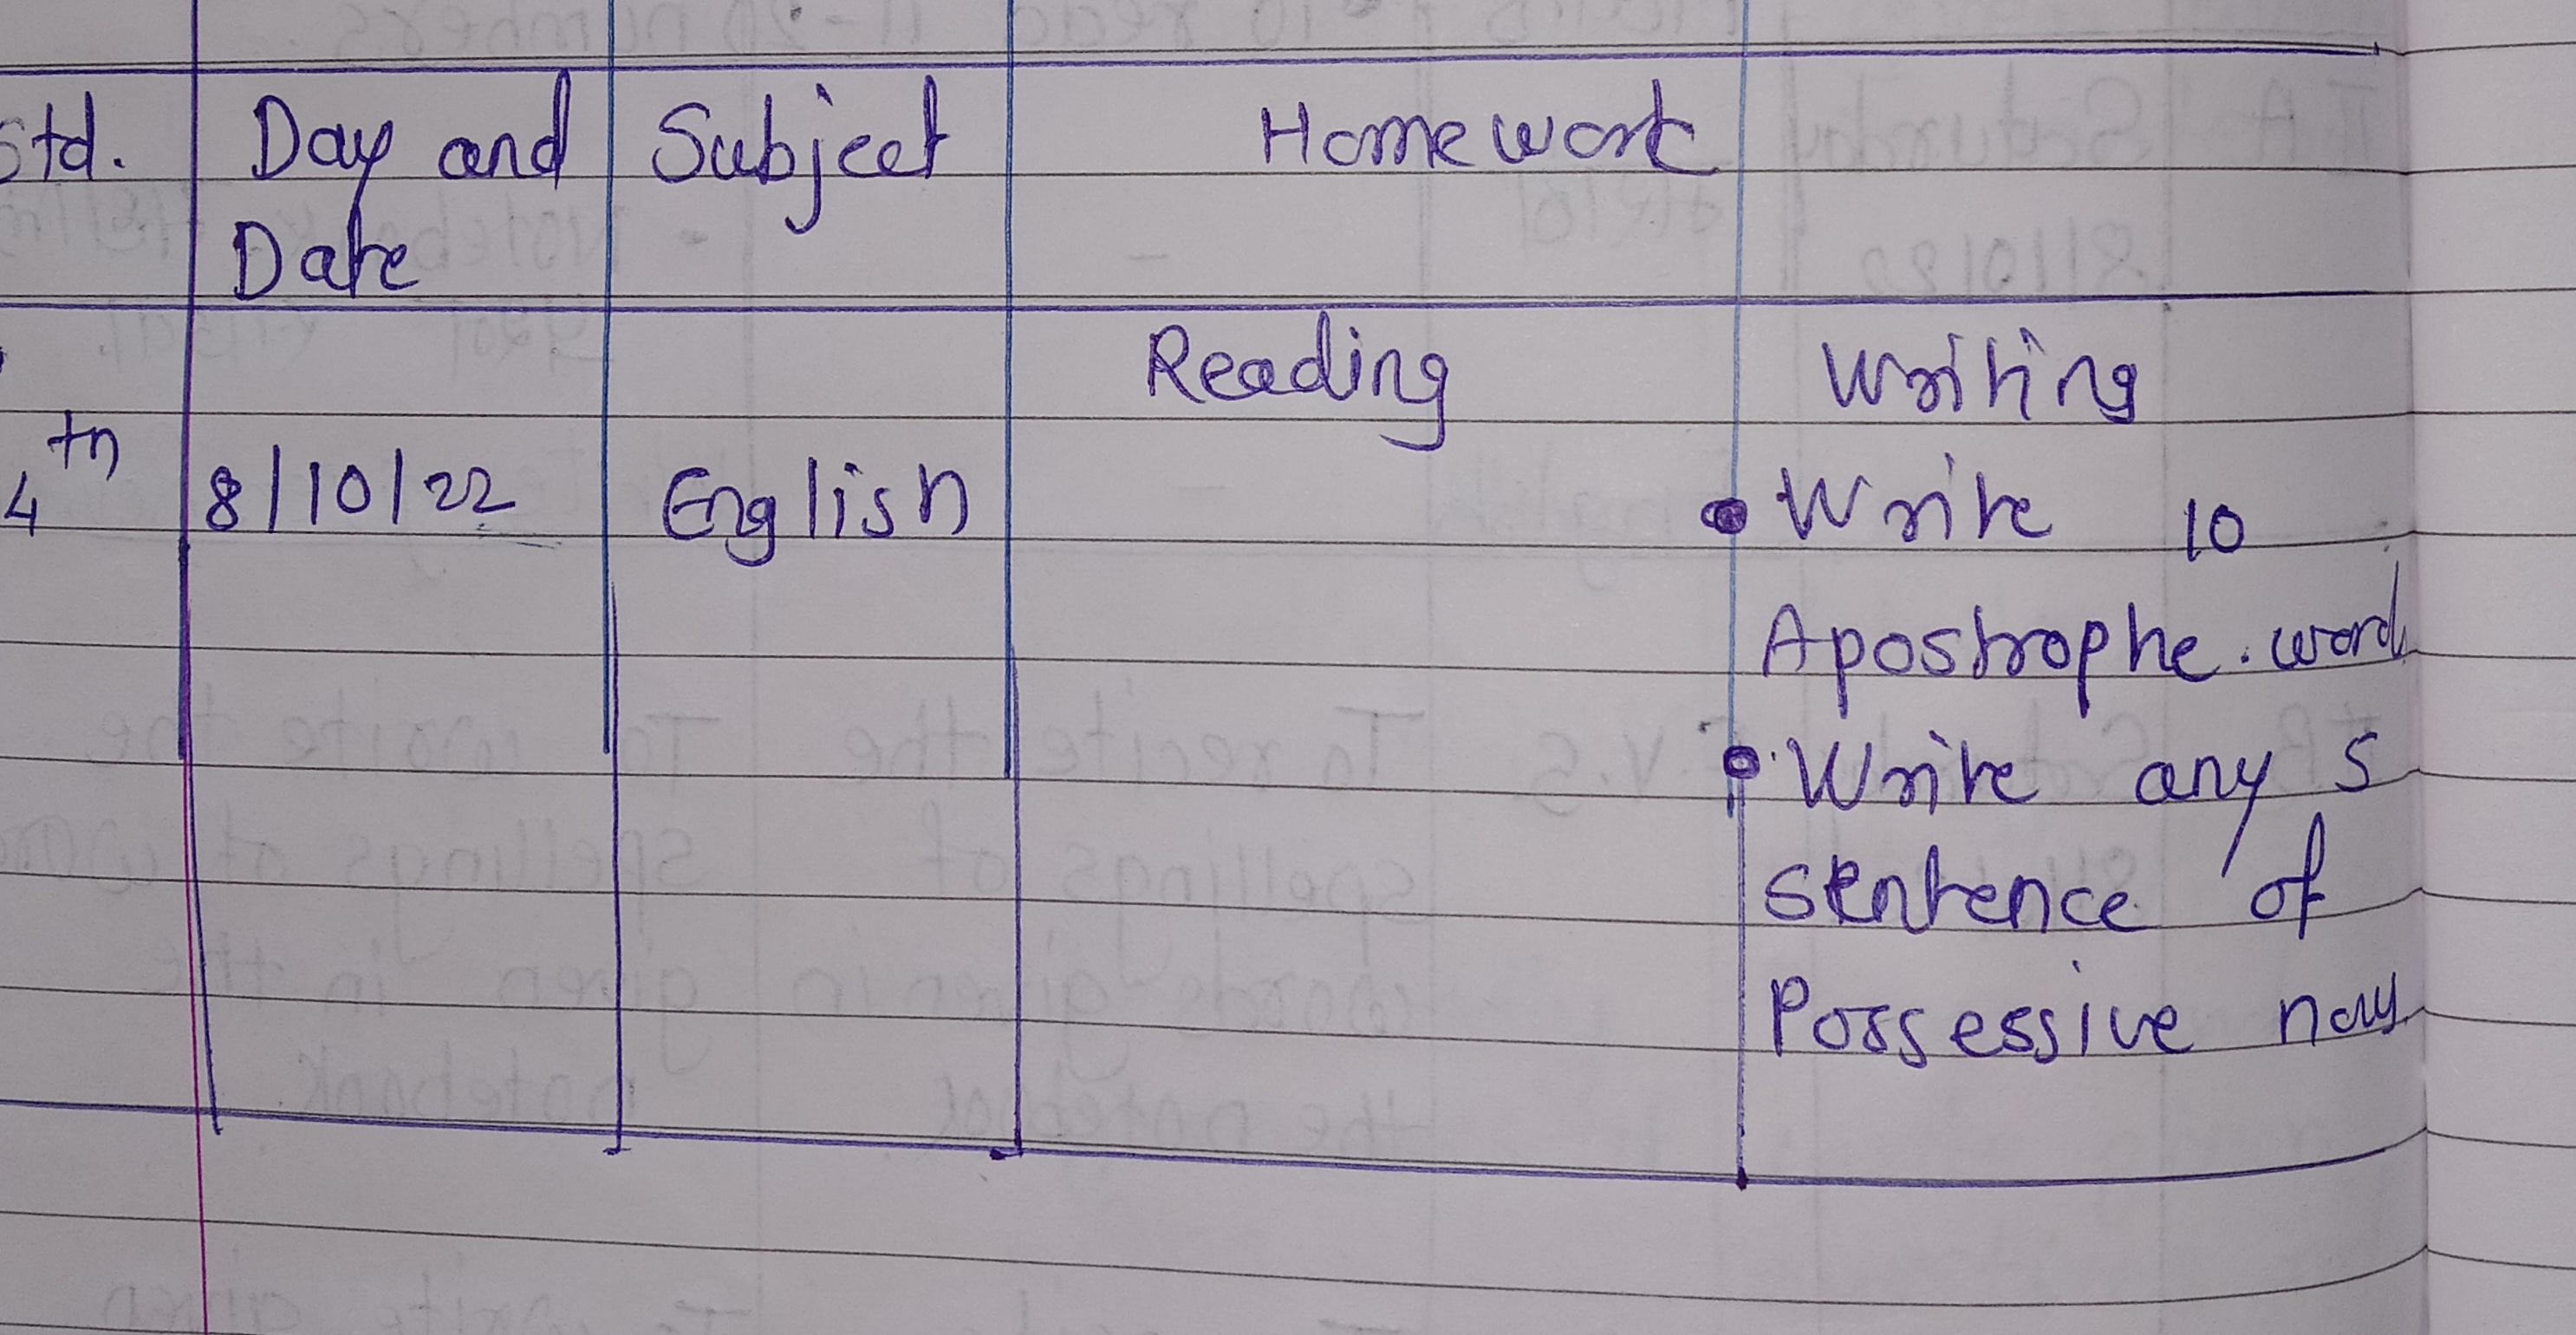 Std. Day and Subject Homework
Date
Reading Writing
4th 8/10/22 English • Write 10
Apostrophe. word
• Write any 5
sentence of
Possessive